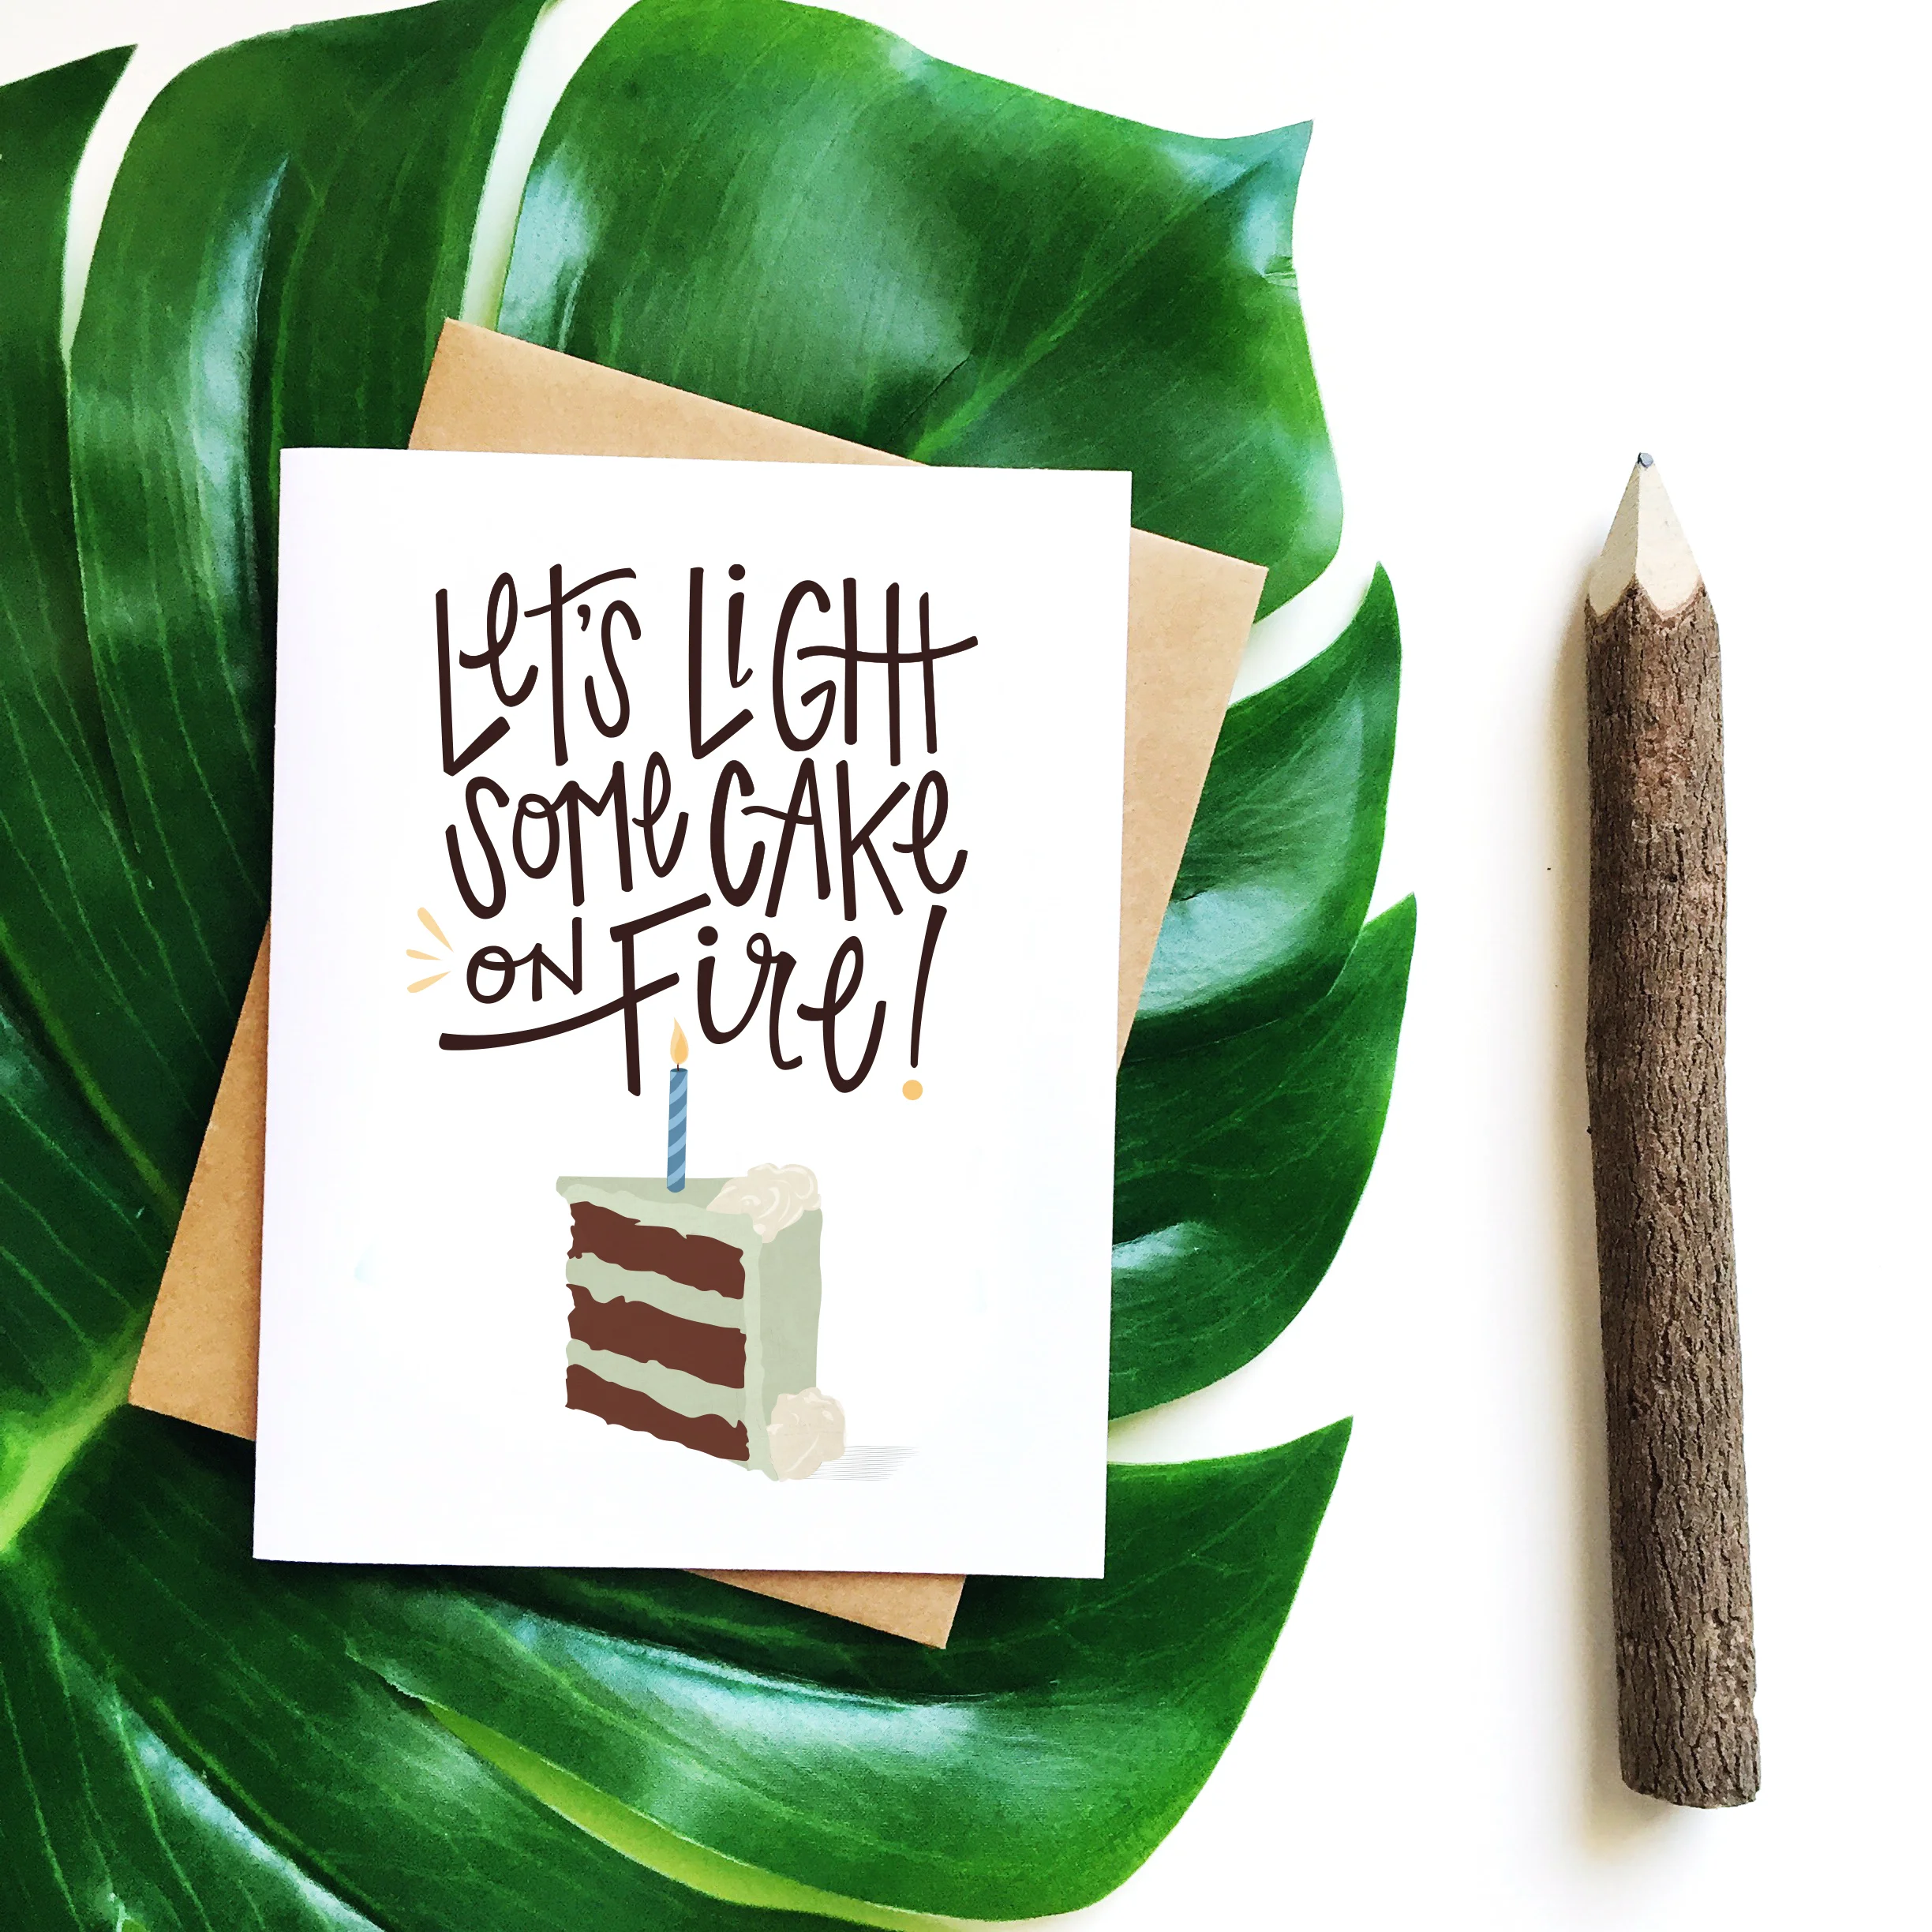 Let's LiGHt
SoMe CAKe
oN Fire!